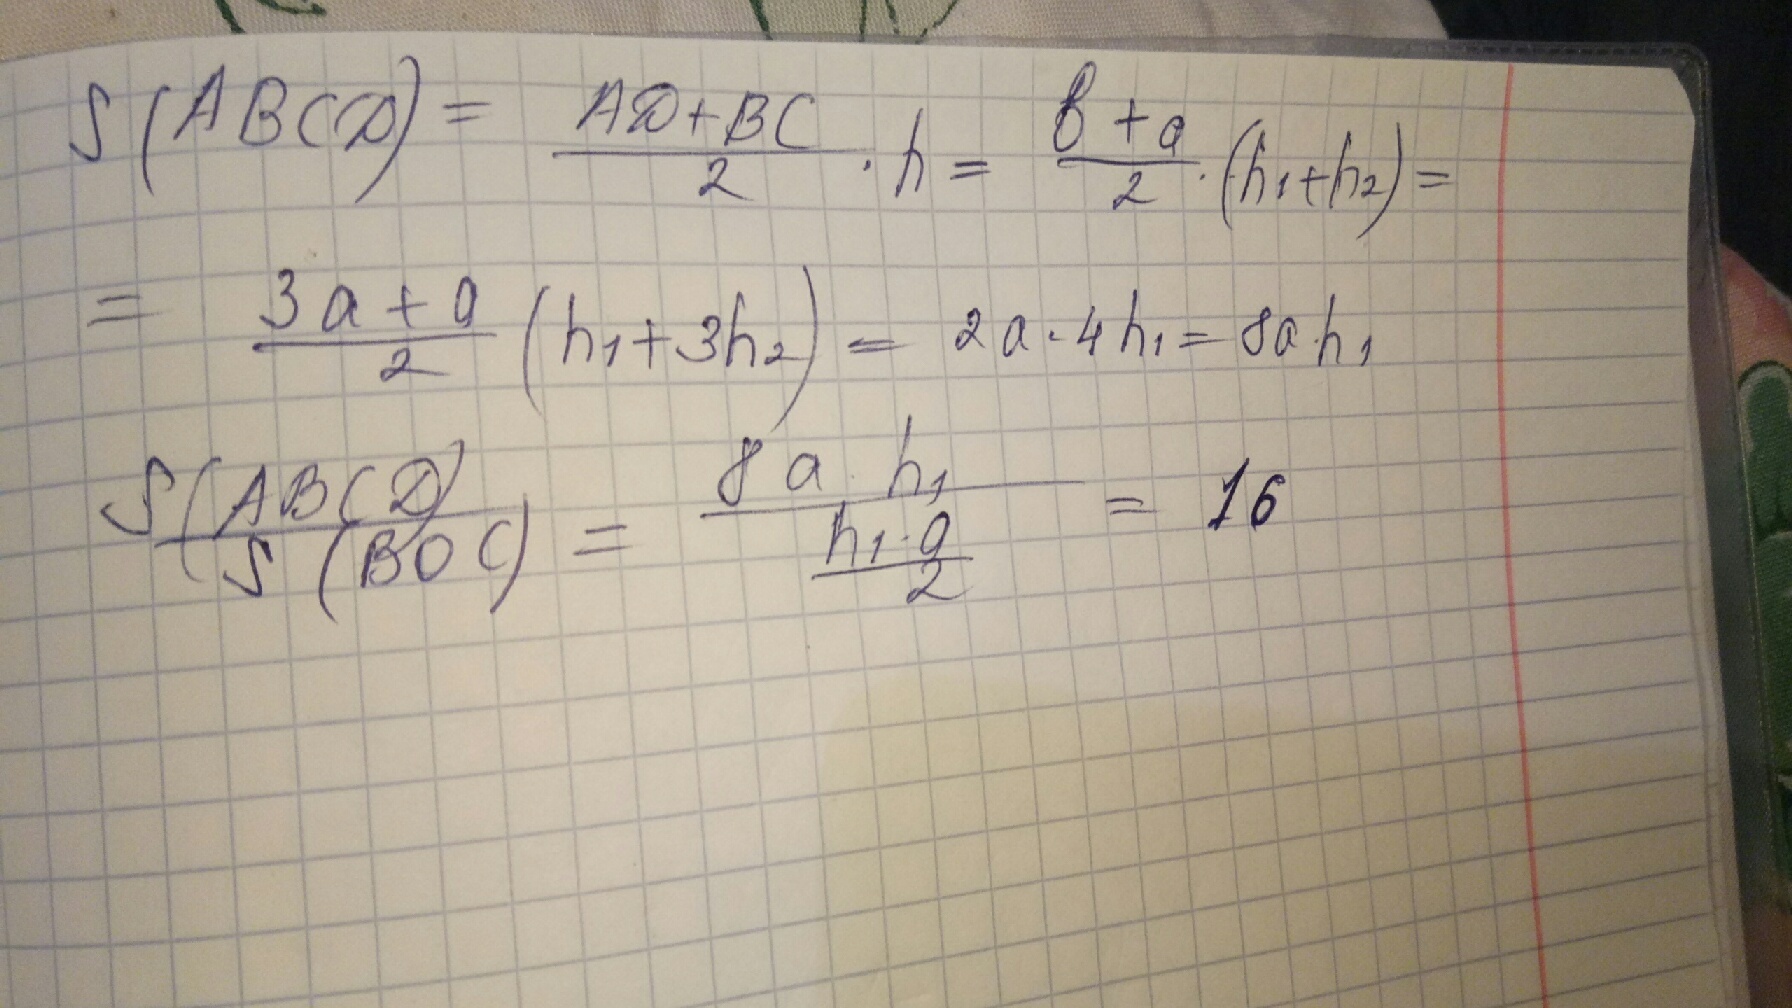 S(ABCD) = (AD+BC)/2 · h = (b+a)/2 · (h₁+h₂) =
= (3a+a)/2 (h₁+3h₂) = 2a·4h₁ = 8a·h₁
S(ABCD)/S(BOC) = (8a·h₁)/((h₁·a)/2) = 16